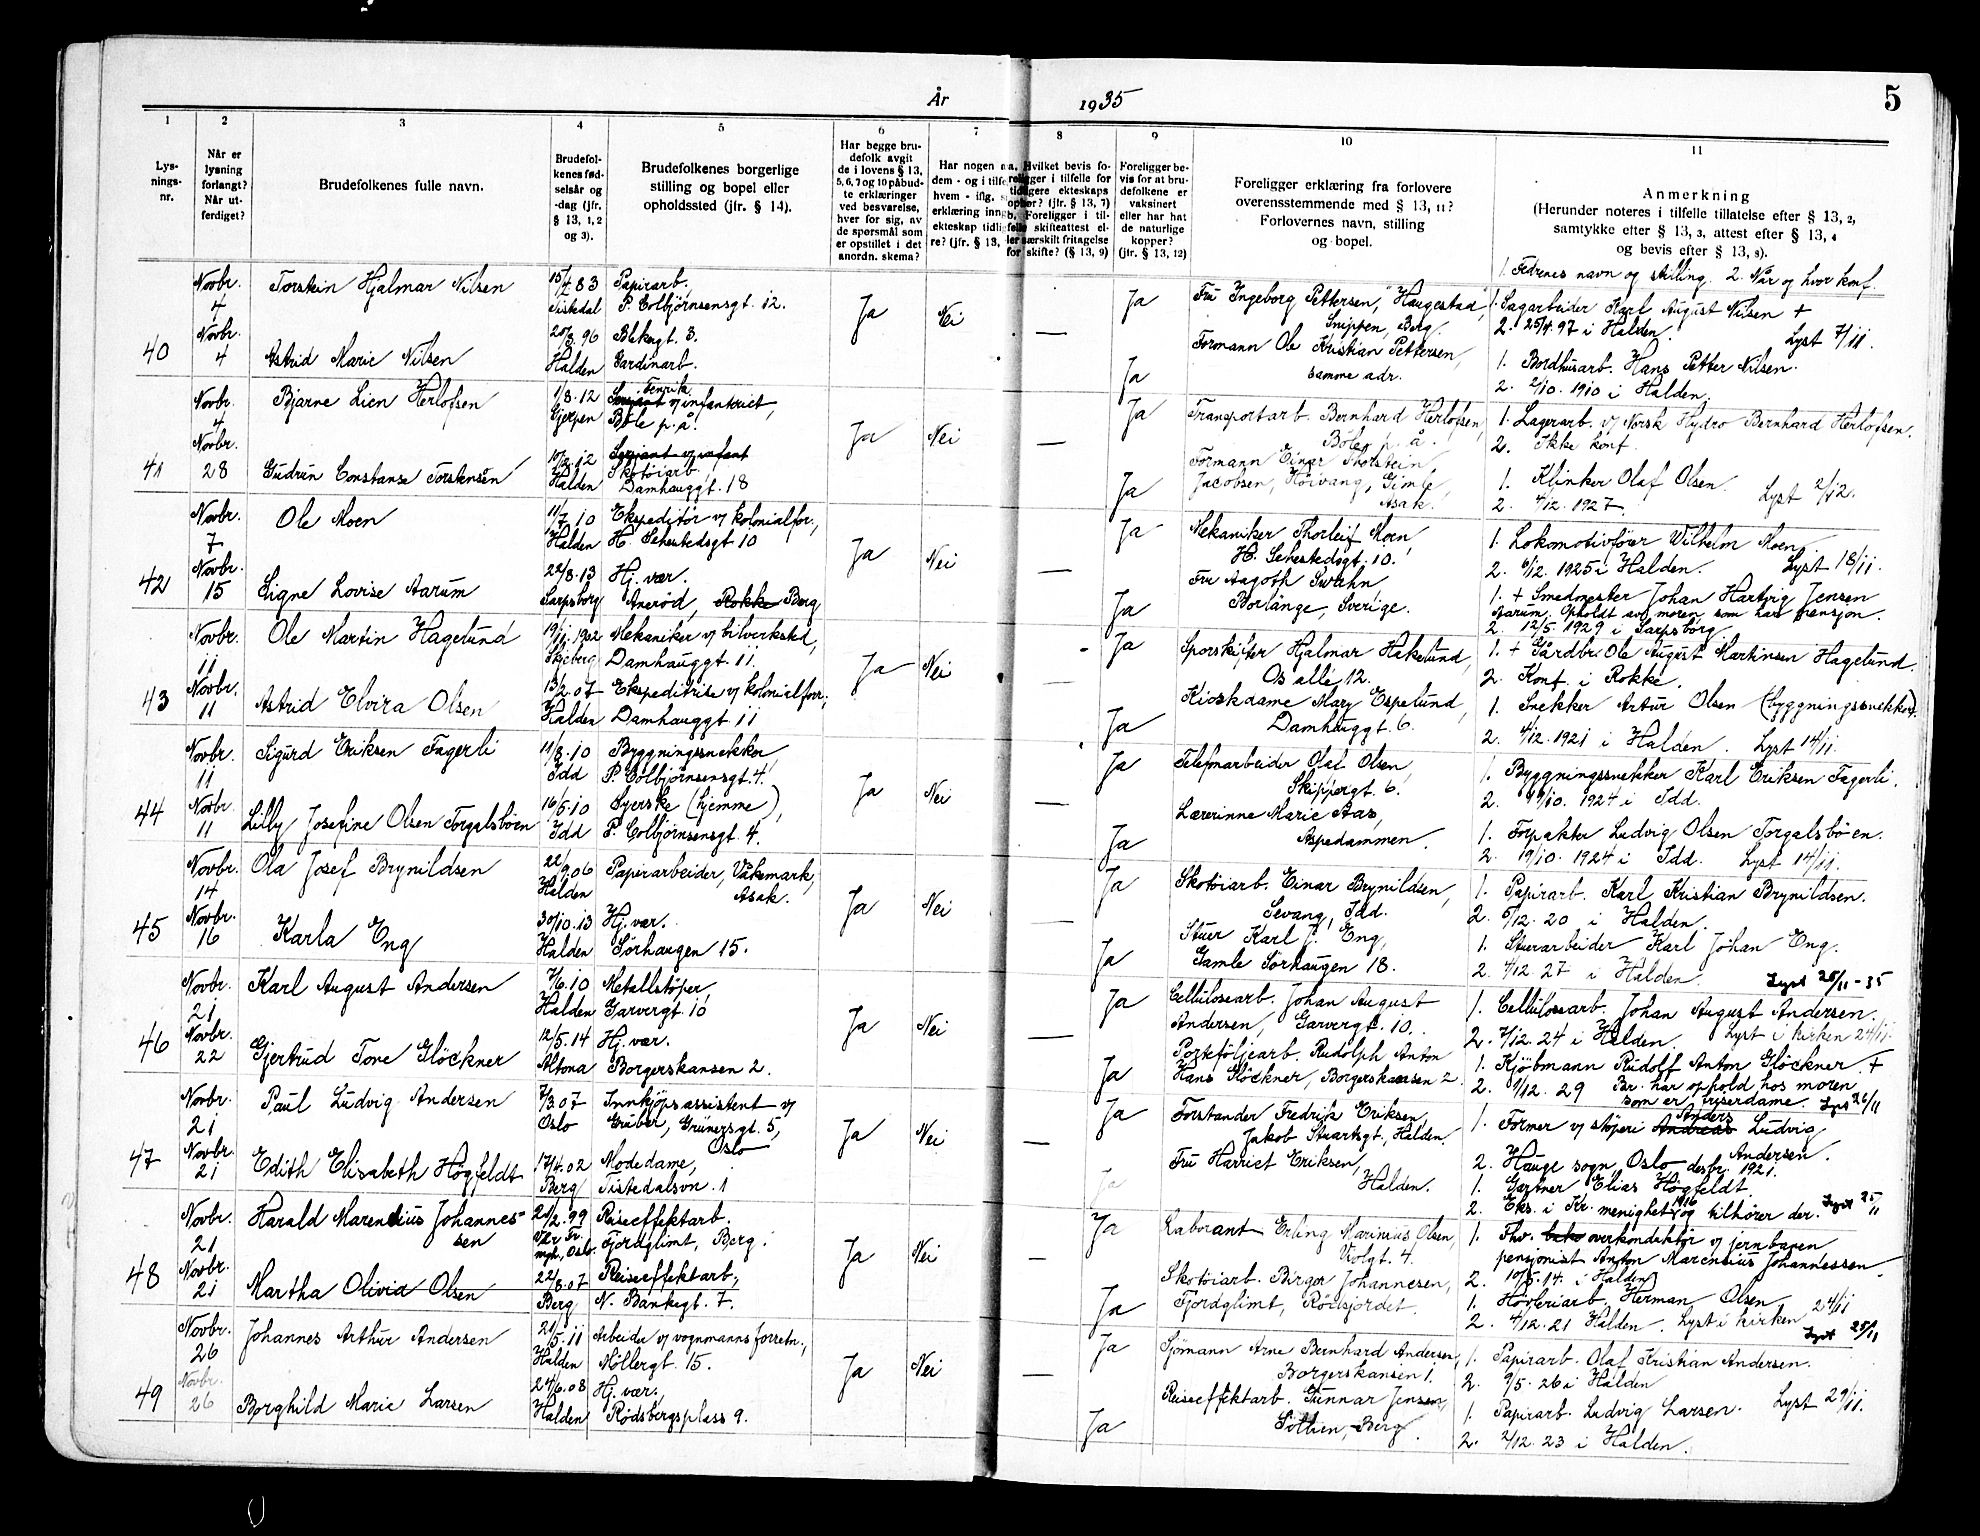 År 1935
5
1 2 3 4 5 6 7 8 9 10 11
Lys-
nings-
nr.
Når er
lysning
forlangt?
Når ut-
ferdiget?
Brudefolkenes fulle navn.
Brudefol-
kenes fød-
selsår og
-dag (jfr.
§ 13, 1, 2
og 3).
Brudefolkenes borgerlige
stilling og bopel eller
opholdssted (jfr. § 14).
Har begge bru-
defolk avgit
de i lovens § 13,
5, 6, 7 og 10 påbud-
te erklæringer
ved besvarelse,
hver for sig, av
de spørsmål som
er opstillet i det
anordn. skema?
Har nogen a
dem - og i tilfe
hvem - iflg. s
erklæring inng
ekteskap tidlig
re? (jfr. § 13,
Hvilket bevis fo-
religger i tilfelle for
tidligere ekteskaps
ophør? (jfr. § 13, 7)
b. Foreligger i til-
felle skifteattest el-
ler særskilt fritagelse
for skifte? (§ 13, 9)
Foreligger be-
vis for at bru-
defolkene er
vaksinert
eller har hat
de naturlige
kopper?
(jfr. § 13, 12)
Foreligger erklæring fra forlovere
overensstemmende med § 13, 11?
Forlovernes navn, stilling
og bopel.
Anmerkning
(Herunder noteres i tilfelle tillatelse efter § 13, 2,
samtykke efter § 13, 3, attest efter § 13, 4
og bevis efter § 13, 8).
1. Fedrenes navn og stilling. 2. Når og hvor konf.
40
Novbr.
4
Torstein Hjalmar Nilsen
15/4 83
Tistedal
Papirarb.
P. Colbjørnsensgt. 12.
Ja
Nei
—
Ja
Fru Ingeborg Pettersen, "Haugestad",
Snippen, Berg.
1. Sagarbeider Karl August Nilsen +
2. 25/4. 97 i Halden. Lyst 7/11.
Novbr.
4
Astrid Marie Nilsen
20/3. 96
Halden
Blekngt. 3.
Gardinarb.
Ja
Formann Ole Kristian Pettersen,
samme adr.
1. Bordhusarb. Hans Petter Nilsen.
2. 2/10. 1910 i Halden.
41
Novbr.
4
Bjarne Lien Herlofsen
1/8. 12
Gjerpen
Fenrik
Sersjant v/ infanteriet,
Bøle p. å.
Ja
Nei
—
Ja
Transportarb. Bernhard Herlofsen,
Bøle, p. å.
1. Lagerarb. v/ Norsk Hydro Bernhard Herlofsen.
2. Ikke konf.
Novbr.
28
Gudrun Constanse Torstensen
Halden
Sersjant v/ infant
Skotøiarb.
Damhauggt. 18
Ja
Formann Einar Thorstein
Jacobsen, Høivang, Gimle,
Asak.
1. Klinker Olaf Olsen.
2. 4/12. 1927. Lyst 2/12.
42
Novbr.
7
Ole Moen
11/7. 10
Halden
Ekspeditør v/ kolonialfor.,
H. Sehestedsgt 10
Ja
Nei
—
Ja
Mekaniker Thorleif Moen,
H. Sehestedsgt. 10.
1. Lokomotivfører Wilhelm Moen.
2. 6/12. 1925 i Halden. Lyst 18/11.
Novbr.
15
Signe Lovise Aarum
22/8. 13
Sarpsborg
Hj. vær.
Anerød, Rokke Berg
Ja
Fru Aagoth Swahn
Borlänge, Sverige.
1. + Smedmester Johan Hartvig Jensen
Aarum. Opholdt av moren, som har pensjon.
2. 12/5. 1929 i Sarpsborg.
43
Novbr.
11
Ole Martin Hagelund
19/11. 1902
Skjeberg
Mekaniker v/ bilverksted,
Damhauggt. 11.
Ja
Nei
—
Ja
Sporskifter Hjalmar Hakelund,
Os alle 12.
1. + Gårdbr. Ole August Martinsen Hagelund.
2. Konf. i Rokke.
Novbr.
11
Astrid Elvira Olsen
13/2. 07
Halden
Ekspeditrise v/ kolonialforr.,
Damhauggt 11
Ja
Kioskdame Mary Espelund,
Damhauggt. 6.
1. Snekker Artur Olsen (byggningssnekker).
2. 4/12. 1921 i Halden. Lyst 14/11.
44
Novbr.
11
Sigurd Eriksen Fagerli
11/8. 10
Idd
Byggningssnekker,
P. Colbjørnsensgt. 4.
Ja
Nei
—
Ja
Telefonarbeider Olaf Olsen,
Skippergt. 6.
1. Byggningssnekker Karl Eriksen Fagerli.
2. 19/10. 1924 i Idd.
Novbr.
11
Lilly Josefine Olsen Torgalsbøen
16/5. 10
Idd
Syerske (hjemme),
P. Colbjørnsensgt. 4.
Ja
Lærerinne Marie Aas,
Aspedammen.
1. Forpakter Ludvig Olsen Torgalsbøen.
2. 19/10. 1924 i Idd. Lyst 14/11.
45
Novbr.
14
Ola Josef Brynildsen
22/9. 06
Halden
Papirarbeider, Våkemark,
Asak.
Ja
Nei
—
Ja
Skotøiarb. Einar Brynildsen,
Sevang, Idd.
1. Papirarb. Karl Kristian Brynildsen.
2. 5/12. 20 i Halden.
Novbr.
16
Karla Eng
30/10. 13
Halden
Hj. vær.
Sørhaugen 15.
Ja
Stuer Karl J. Eng,
Gamle Sørhaugen 18.
1. Stuerarbeider Karl Johan Eng.
2. 4/12. 27 i Halden. Lyst 25/11-35
46
Novbr.
21
Karl August Andersen
7/6. 10
Halden
Metallstøper,
Garvergt. 10
Ja
Nei
—
Ja
Cellulosearb. Johan August
Andersen, Garvergt. 10.
1. Cellulosearb. Johan August Andersen.
2. 7/12. 24 i Halden. Lyst i kirken 24/11.
Novbr.
22
Gjertrud Tove Glöckner
12/5. 14
Altona
Hj. vær.
Borgerskansen 2.
Ja
Porteføljearb. Rudolph Anton
Hans Glöckner, Borgerskansen 2.
1. Kjøbmann Rudolf Anton Glöckner. +
2. 1/12. 29 Br. har ophold hos moren
som er friserdame. Lyst 26/11
47
Novbr.
21
Paul Ludvig Andersen
7/3. 07
Oslo
Innkjøpsassistent v/
Gruber, Grünersgt. 5,
Oslo
Ja
Nei
—
Ja
Forstander Fredrik Eriksen,
Jakob Stuartsgt., Halden.
1. Former v/ støperi Andreas Anders Ludvig
Andersen.
2. Hauge sogn, Oslo, desbr. 1921.
Novbr.
21
Edith Elisabeth Högfeldt
17/4. 02
Berg
Motedame,
Tistedalsvn. 1
Ja
Fru Harriet Eriksen,
Halden.
1. Gartner Elias Högfeldt.
2. Eks. i Kr. menighet 1916 og tilhører der. Lyst 25/11
48
Novbr.
21
Harald Marensius Johannes-
sen
21/2. 99
Reiseeffektarb.
Fjordglimt, Berg.
Ja
Nei
—
Ja
Laborant Erling Marinius Olsen,
Violgt. 4.
1. Fhv. overkonduktør v/ jernbanen
pensjonist Anton Marensius Johannessen.
2. 10/5. 14. i Halden
Novbr.
21
Martha Olivia Olsen
22/8. 07
Berg
Reiseeffektarb.,
N. Bankegt. 7.
Ja
Skotøiarb. Birger Johannesen,
Fjordglimt, Rødsjordet.
1. Høvleriarb. Herman Olsen
2. 4/12. 21 Halden. Lyst i kirken 24/11
Lyst 25/11
49
Novbr.
26
Johannes Arthur Andersen
21/5. 11
Halden
Arbeider v/ vognmannsforretn.,
Møllergt. 15.
Ja
Nei
—
Ja
Sjømann Arne Bernhard Andersen,
Borgerskansen 1.
1. Papirarb. Olaf Kristian Andersen.
2. 9/5. 26 i Halden
Novbr.
26
Borghild Marie Larsen
24/6. 08
Halden
Hj. vær.,
Rødsbergsplass 9.
Ja
Reiseeffektarb. Gunnar Jensen,
Sollien, Berg.
1. Papirarb. Ludvig Larsen. Lyst 29/11.
2. 2/12. 23 i Halden.